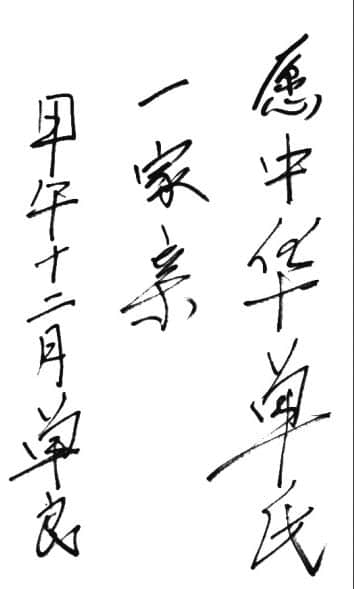 愿中华单氏
一家亲
甲午十二月单良